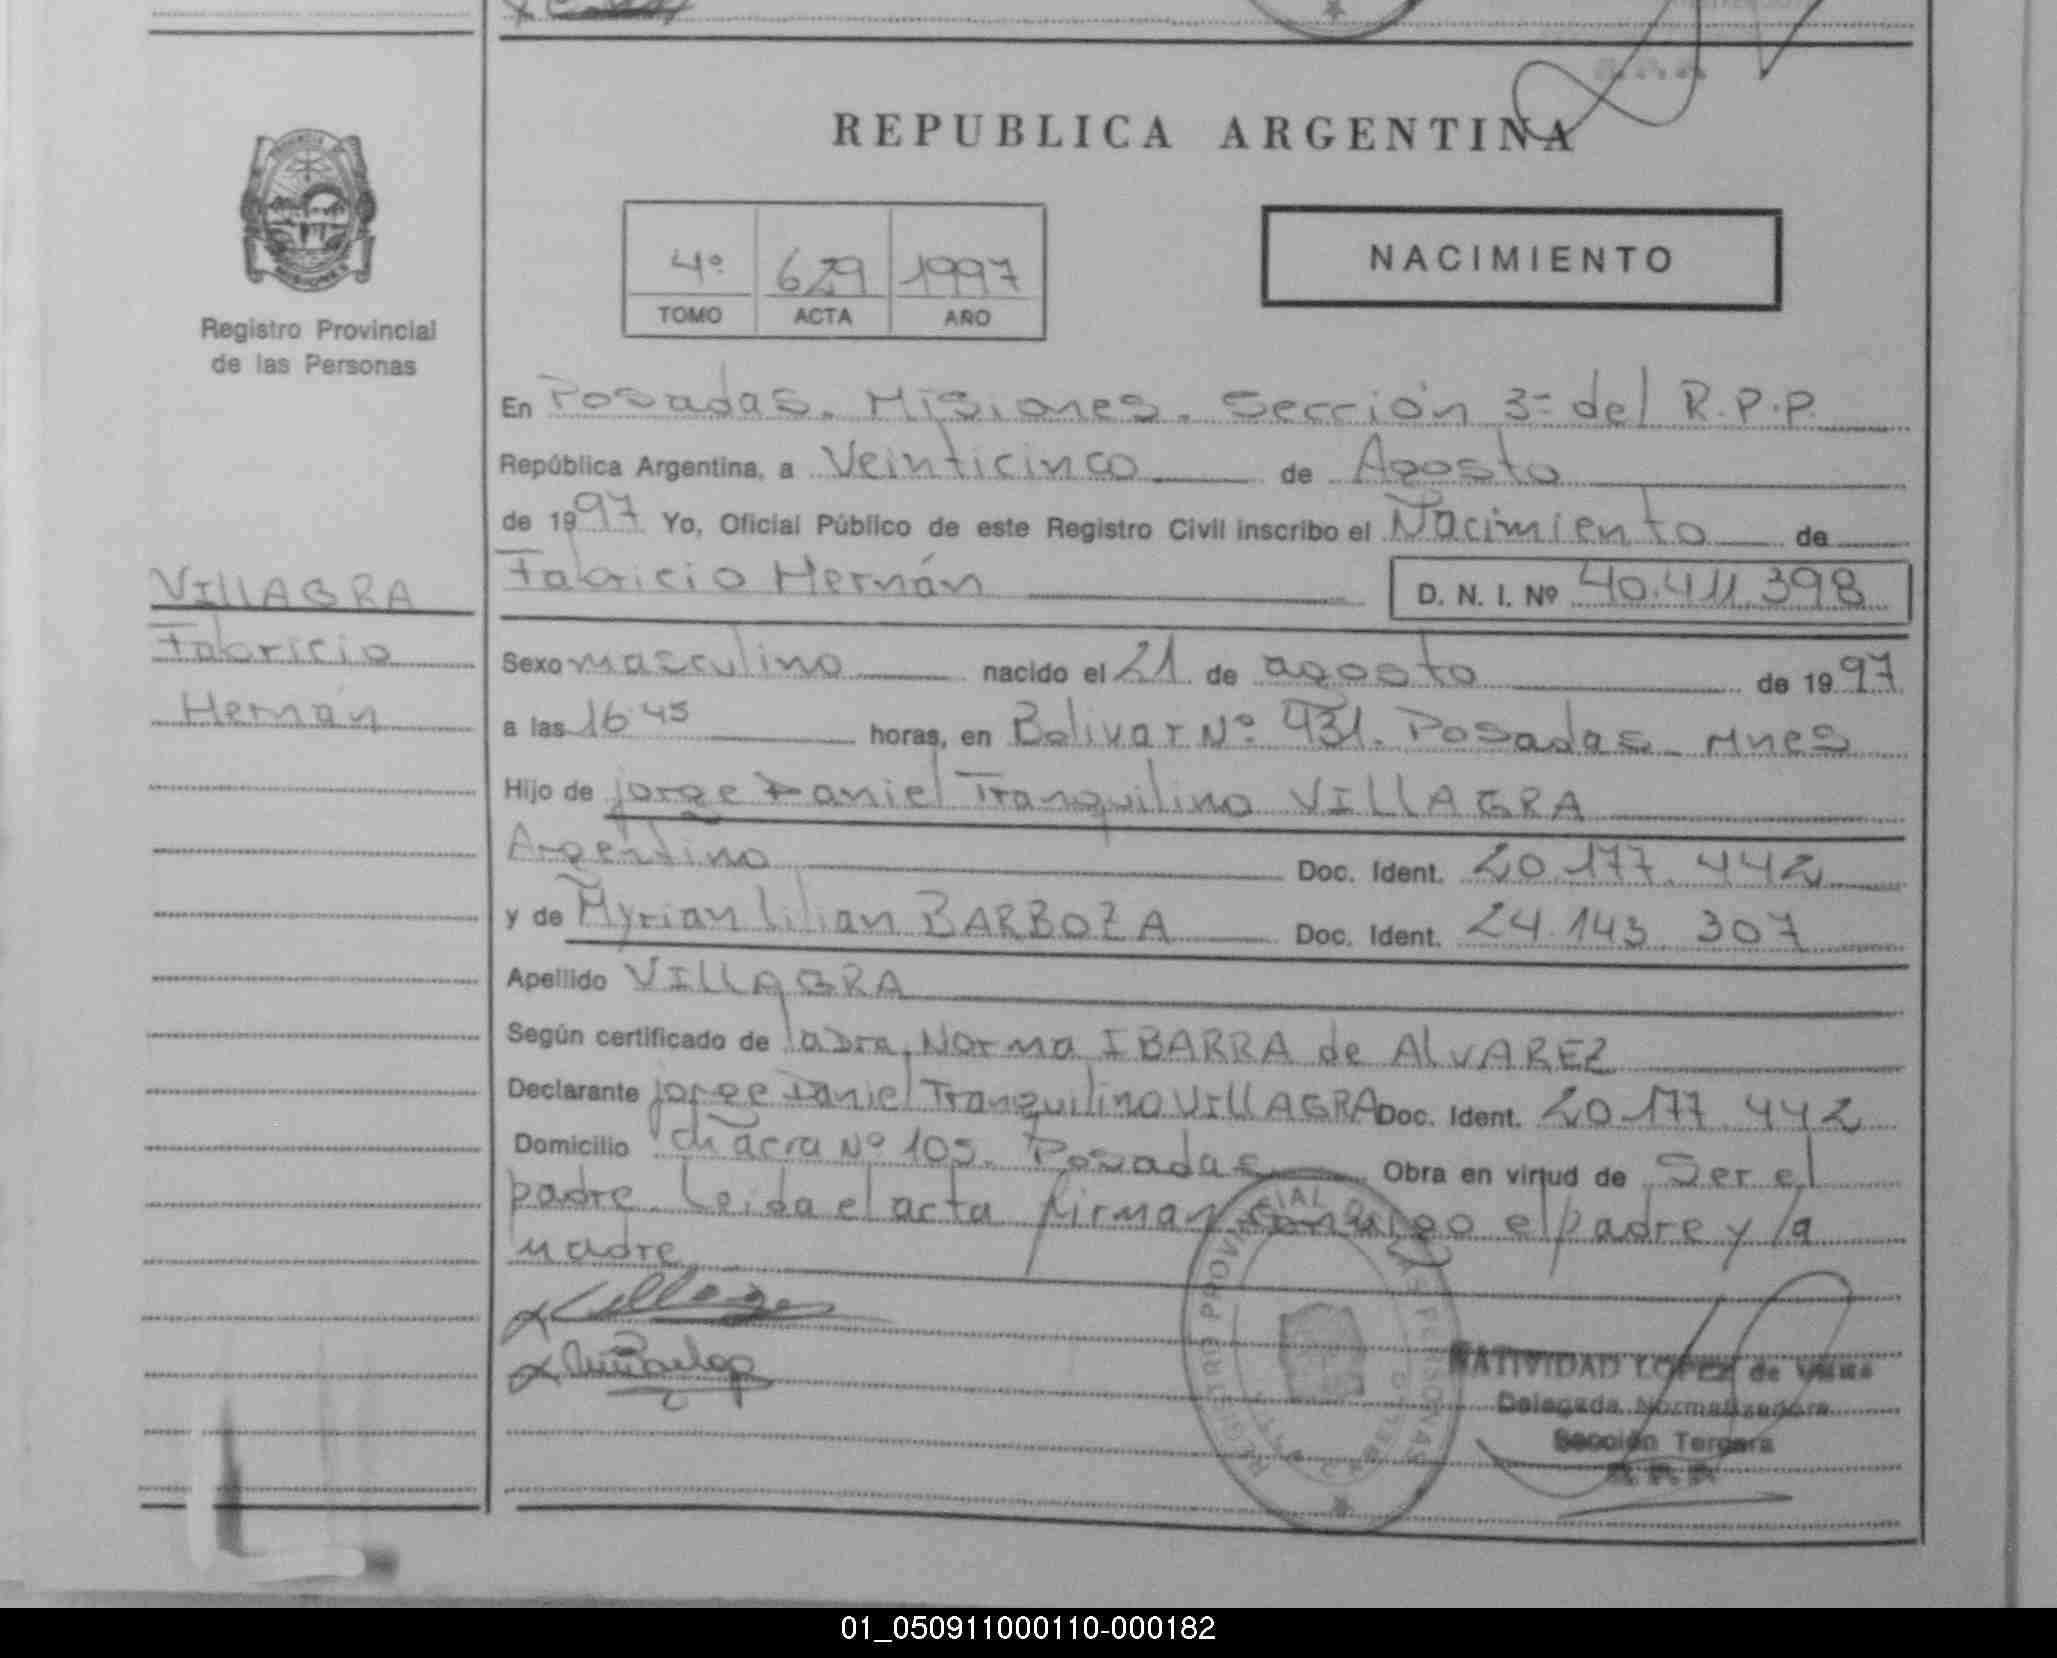 REPUBLICA ARGENTINA
NACIMIENTO
4º 629 1997
TOMO ACTA AÑO
Registro Provincial
de las Personas
En Posadas. Misiones. Sección 3ª del R.P.P.
República Argentina, a Veinticinco de Agosto
de 1997 Yo, Oficial Público de este Registro Civil inscribo el Nacimiento de
Fabricio Hernán D. N. I. Nº 40.411.398
VIllAGRA
Fabricio
Hernán
Sexo masculino nacido el 21 de agosto de 1997
a las 16 45 horas, en Bolivar Nº 931. Posadas. Mnes
Hijo de jorge Daniel Tranquilino VIllAGRA
Argentino Doc. Ident. 20.177.442
y de Myrian lilian BARBOZA Doc. Ident. 24.143 307
Apellido VIllAGRA
Según certificado de la Dra. Norma IBARRA de AlVAREZ
Declarante jorge Daniel Tranquilino VIllAGRA Doc. Ident. 20.177.442
Domicilio chacra Nº 105. Posadas Obra en virtud de Ser el
padre. Leida el acta firman conmigo el padre y la
madre
REGISTRO PROVINCIAL DE LAS PERSONAS
NATIVIDAD LOPEZ de
Delegada Normalizadora
Sección Tercera
R.P.P.
01_050911000110-000182